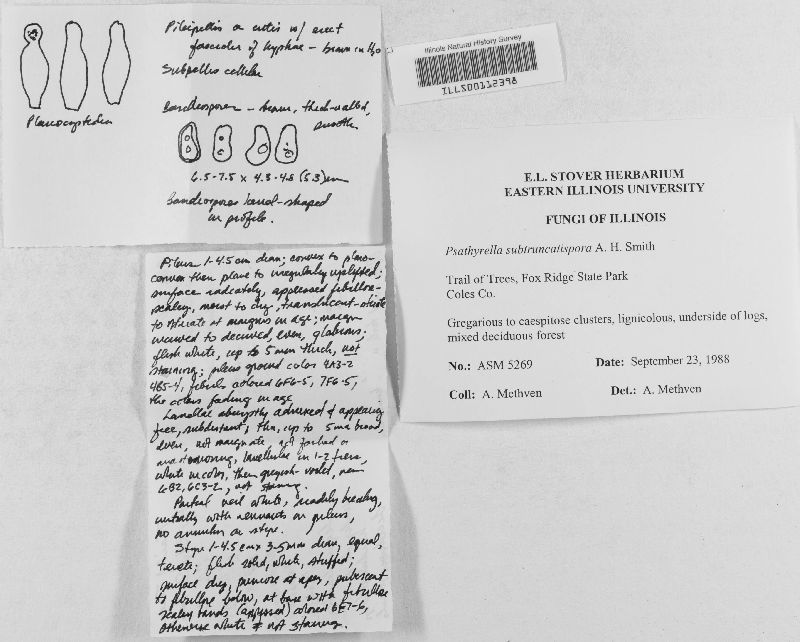 Pileipellis a cutis w/ erect
fascicles of hyphae - brown in H2O
Subpellis cellular
Pleurocystidia
Basidiospores - brown, thick-walled,
smooth.
6.5-7.5 x 4.3-4.8 (5.3) um
Basidiospores lemul-shaped
in profile.
Illinois Natural History Survey
ILLS00112398
E.L. STOVER HERBARIUM
EASTERN ILLINOIS UNIVERSITY
FUNGI OF ILLINOIS
Psathyrella subtruncatispora A. H. Smith
Trail of Trees, Fox Ridge State Park
Coles Co.
Gregarious to caespitose clusters, lignicolous, underside of logs,
mixed deciduous forest
No.: ASM 5269 Date: September 23, 1988
Coll: A. Methven Det.: A. Methven
Pileus 1-4.5 cm diam; convex to plano-
convex then plane to irregularly uplifted;
surface radiately, appressed fibrillose-
scaley, moist to dry, translucent-striate
to striate at margins in age; margin
incurved to decurved, even, glabrous;
flesh white, up to 5 mm thick, not
staining; pileus ground color 4A3-2
4B5-4, fibrils colored 6F6-5, 7F6-5,
the colors fading in age
Lamellae abruptly adnexed & appearing
free, subdistant, thin, up to 5 mm broad,
even, not marginate, not forked or
anastomosing, lamellulae in 1-2 tiers,
white in color, then greyish-violet, near
6B2, 6C3-2, not staining.
Partial veil white, readily breaking,
initially with remnants on pileus,
no annulus on stipe.
Stipe 1-4.5 cm x 3-5 mm diam, equal,
terete; flesh solid, white, stuffed;
surface dry, pruinose at apex, pubescent
to fibrillose below, at base with fibrillose
scaley bands (appressed) colored 6E7-6,
otherwise white & not staining.